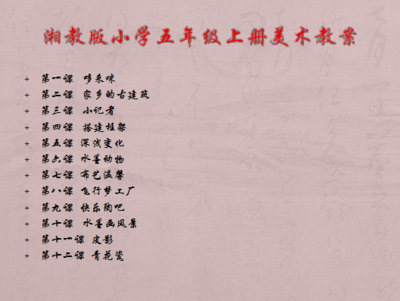 湘教版小学五年级上册美术教案
第一课 哆来咪
第二课 家乡的古建筑
第三课 小记者
第四课 搭建框架
第五课 深浅变化
第六课 水墨动物
第七课 布艺温馨
第八课 飞行梦工厂
第九课 快乐陶吧
第十课 水墨画风景
第十一课 皮影
第十二课 青花瓷